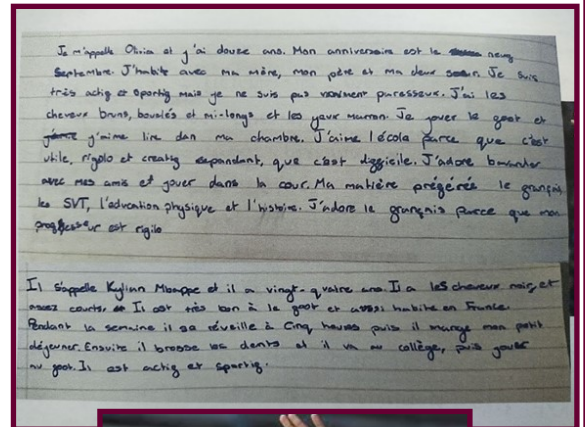 Je m'appelle Olivia et j'ai douze ans. Mon anniversaire est le neuf
Septembre. J'habite avec ma mère, mon père et ma deux soeur. Je suis
très actif et sportif mais je ne suis pas vraiment paresseux. J'ai les
cheveux bruns, bouclés et mi-longs et les yeux marron. Je jouer le foot et
j'aime lire dan ma chambre. J'aime l'école parce que c'est
utile, rigolo et creatif cependant, que c'est difficile. J'adore bavarder
avec mes amis et jouer dans la cour. Ma matière préférés le français
les SVT, l'education physique et l'histoire. J'adore le français parce que mon
professeur est rigilo
Il s'appelle Kylian Mbappe et il a vingt-quatre ans. Il a les cheveux noir, et
assez courts. Il est très bon à le foot et aussi habite en France.
Pendant la semaine il se réveille à Cinq heures puis il mange mon petit
déjeuner. Ensuite il brosse les dents et il va au collège, puis jouer
au foot. Il est actif et sportif.